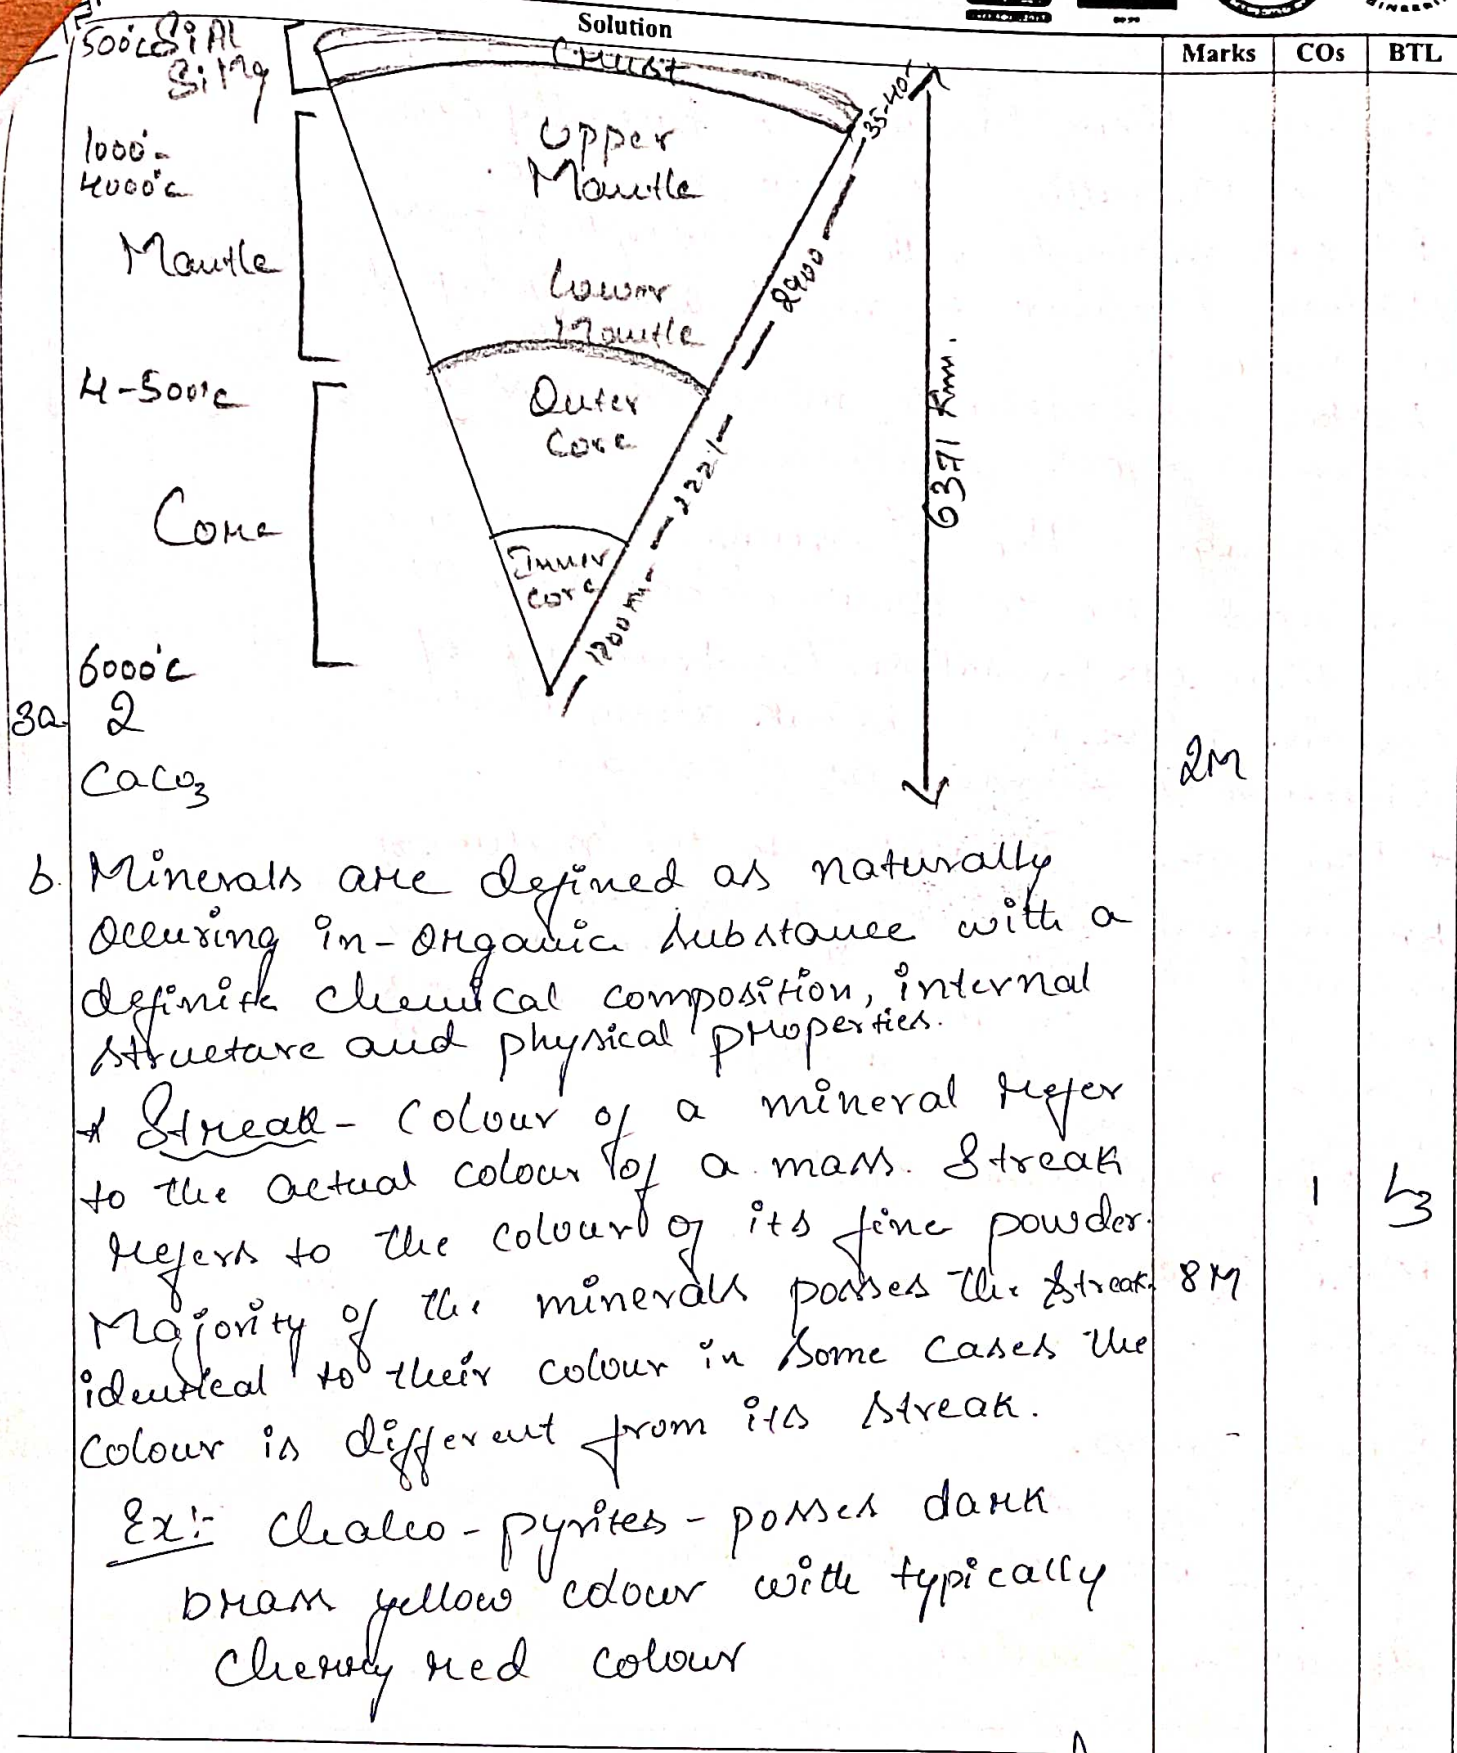 Solution
Marks COs BTL
500°c SiAl
SiMg
Crust
35-40
1000°-
4000°c
Upper
Mantle
Mantle
Lower
Mantle
2900
6371 Km.
4-500°c
Outer
Core
Core
Inner
Core
6000°c
3a 2
CaCO3
2M
b. Minerals are defined as naturally
occuring in-organic substance with a
definite chemical composition, internal
structure and physical properties.
* Streak - Colour of a mineral refer
to the actual colour of a mass. Streak
refers to the colour of its fine powder.
1 L3
Majority of the minerals posses the streak
8M
identical to their colour in some cases the
colour is different from its streak.
Ex:- Chalco-pyrites - posses dark
brass yellow colour with typically
cherry red colour